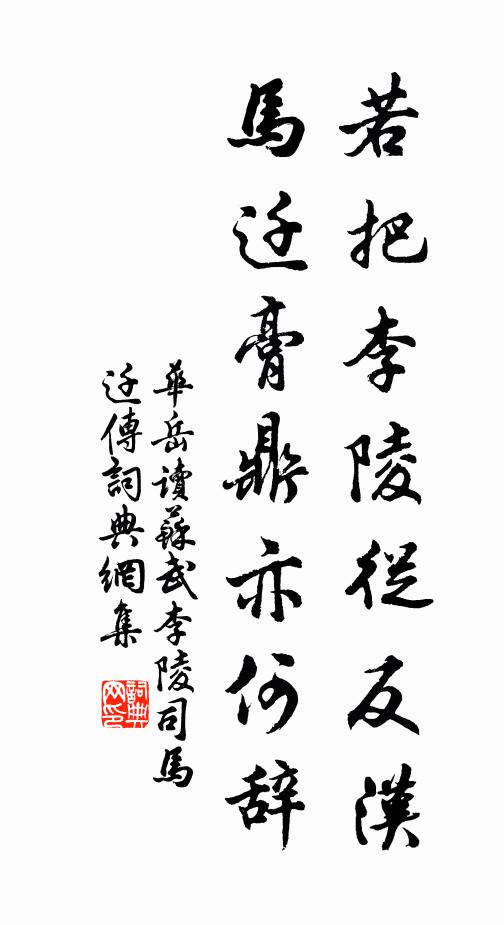 若把李陵從反漢
馬迁膏鼎亦何辞
華岳讀蘇武李陵司馬
迁傳詞典網集
詞典网印